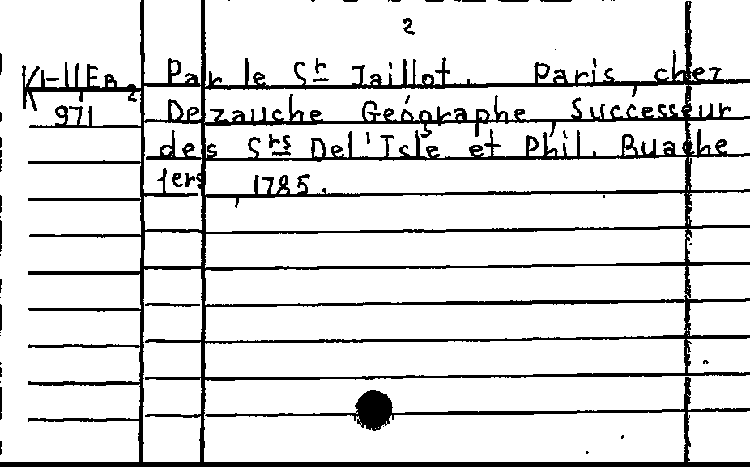 2
Par le Sr Jaillot. Paris, chez
971 Dezauche Géographe, Successeur
des Srs Del'Isle et Phil. Buache
1ers, 1785.